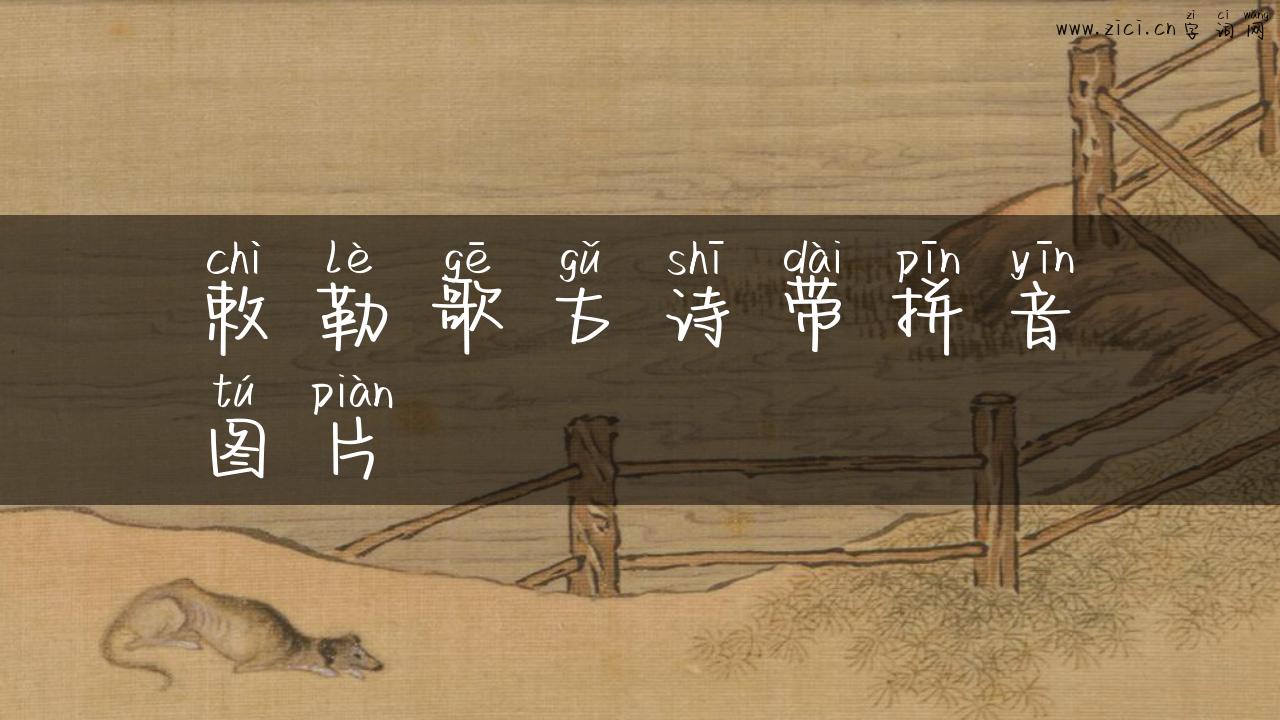 zì cí wǎng
www.zici.cn 字词网
chì lè gē gǔ shī dài pīn yīn
敕勒歌古诗带拼音
tú piàn
图片